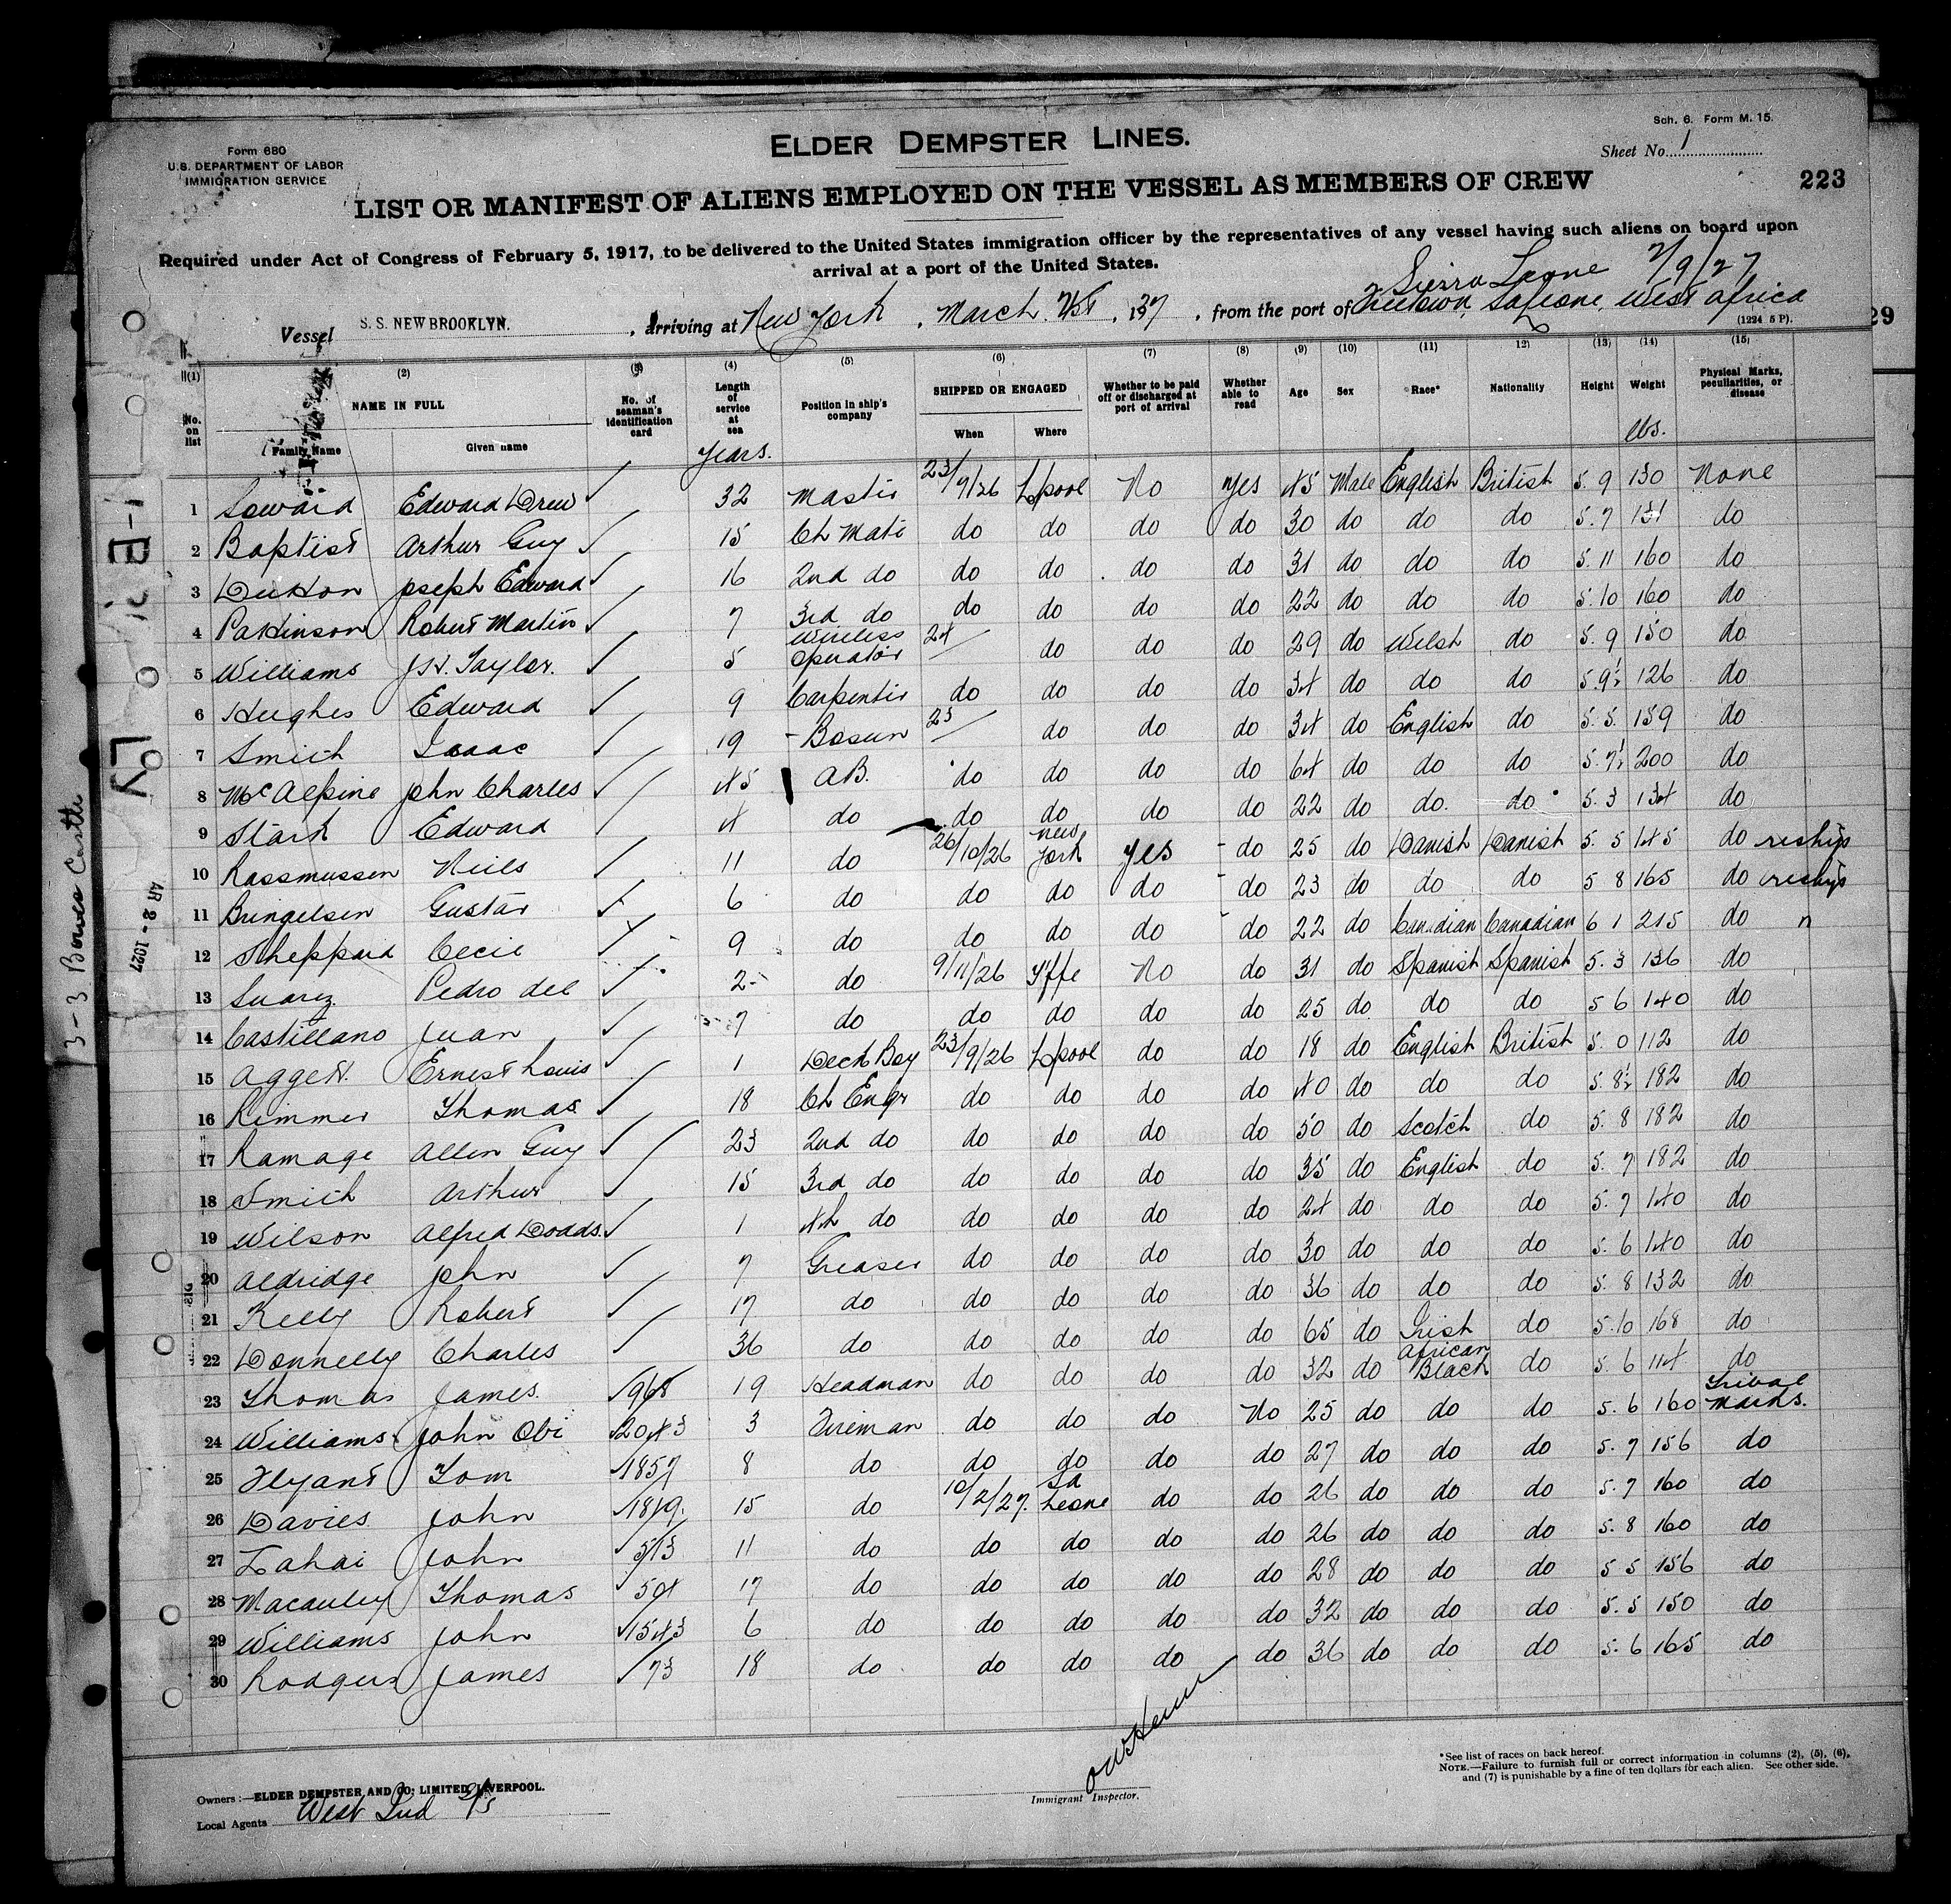 Sch. 6. Form M. 15.
Form 680
U.S. DEPARTMENT OF LABOR
IMMIGRATION SERVICE
ELDER DEMPSTER LINES.
Sheet No. 1
LIST OR MANIFEST OF ALIENS EMPLOYED ON THE VESSEL AS MEMBERS OF CREW
223
Required under Act of Congress of February 5, 1917, to be delivered to the United States immigration officer by the representatives of any vessel having such aliens on board upon
arrival at a port of the United States.
Sierra Leone 2/9/27
Vessel S. S. NEW BROOKLYN. , arriving at New York , March , from the port of Freetown, Saleone, West Africa
(1224 5 P).
29
(1) (2) (3) (4) (5) (6) (7) (8) (9) (10) (11) (12) (13) (14) (15)
No. on list NAME IN FULL Family Name Given name No. of seaman's identification card Length of service at sea Position in ship's company SHIPPED OR ENGAGED When Where Whether to be paid off or discharged at port of arrival Whether able to read Age Sex Race* Nationality Height Weight Physical Marks, peculiarities, or disease
years. lbs.
1 Seward Edward Drew 32 Master 23/9/26 L'pool No yes 45 Male English British 5. 9 130 None
2 Baptist Arthur Guy 15 Ch Mate do do do do 30 do do do 5. 7 131 do
3 Dutton Joseph Edward 16 2nd do do do do do 31 do do do 5. 11 160 do
4 Parkinson Robert Martin 7 3rd do do do do do 22 do do do 5. 10 160 do
5 Williams J.H. Taylor. 5 Wireless operator 24/ do do do 29 do Welsh do 5. 9 150 do
6 Hughes Edward 9 Carpenter do do do do 34 do do do 5. 9½ 126 do
7 Smith Isaac 19 Bosun 23/ do do do 34 do English do 5. 5. 159 do
8 McAlpine John Charles 45 A.B. do do do do 64 do do do 5. 7½ 200 do
9 Stark Edward 4 do do do do do 22 do do. do 5. 3 134 do
10 Rassmussen Neils 11 do 26/10/26 New York yes do 25 do Danish Danish 5. 5 145 do reships
11 Bringelsen Gustav 6 do do do do do 23 do do do 5 8 165 do reships
12 Sheppard Cecil 9 do do do do do 22 do Canadian Canadian 6 1 215 do n
13 Suarez Pedro del 2 do 9/11/26 T'ffe No do 31 do Spanish Spanish 5. 3 136 do
14 Castillano Juan 7 do do do do do 25 do do do 5 6 140 do
15 Aggett. Ernest Louis 1 Deck Boy 23/9/26 L'pool do do 18 do English British 5. 0 112 do
16 Rimmer Thomas 18 Ch Engr do do do do 40 do do do 5. 8½ 182 do
17 Ramage Allen Guy 23 2nd do do do do do 50 do Scotch do 5. 8 182 do
18 Smith Arthur 15 3rd do do do do do 35 do English do 5. 7 182 do
19 Wilson Alfred Dodds. 1 4th do do do do do 24 do do do 5. 7 140 do
20 Aldridge John 7 Greaser do do do do 30 do do do 5. 6 140 do
21 Kelly Robert 17 do do do do do 36 do do do 5. 8 132 do
22 Donnelly Charles 36 do do do do do 65 do Irish do 5. 10 168 do
23 Thomas James. 968 19 Headman do do do do 32 do African Black do 5. 6 114 do
24 Williams John Obi 2043 3 Fireman do do do No 25 do do do 5. 6 160 Tribal Marks.
25 Flyant Tom 1857 8 do do do do do 27 do do do 5. 7 156 do
26 Davies John 1819. 15 do 10/2/27. Sa Leone do do 26 do do do 5. 7 160 do
27 Lahai John 513 11 do do do do do 26 do do do 5. 8 160 do
28 Macauley Thomas 504 17 do do do do do 28 do do do 5 5 156 do
29 Williams John 1543 6 do do do do do 32 do do do 5. 5 150 do
30 Rodgers James 73 18 do do do do do 36 do do do 5. 6 165 do
3-3 Bowes Castle
AR 2 - 1927
Immigrant Inspector.
*See list of races on back hereof.
NOTE.—Failure to furnish full or correct information in columns (2), (5), (6),
and (7) is punishable by a fine of ten dollars for each alien. See other side.
Owners :—ELDER DEMPSTER AND CO; LIMITED, LIVERPOOL.
Local Agents West Ind